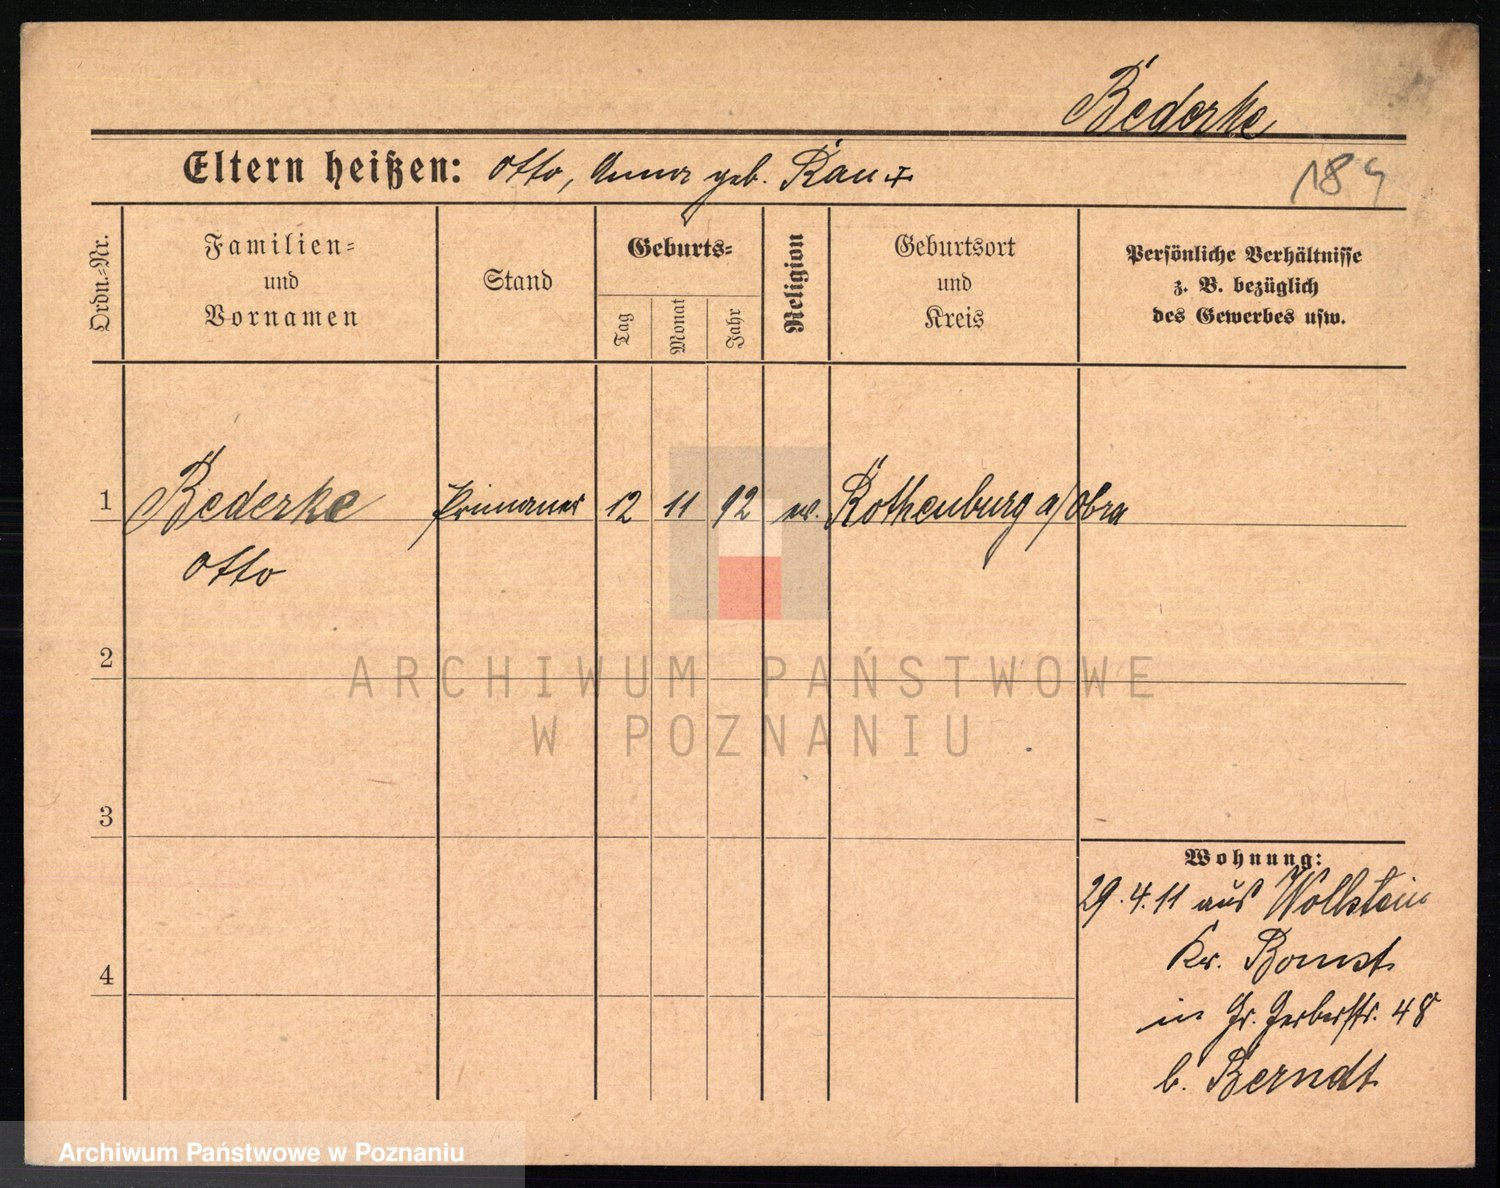 Bederke
Eltern heißen: Otto, Anna geb. Rau +
189
Ordn.-Nr.
Familien-
und
Vornamen
Stand
Geburts-
Tag
Monat
Jahr
Religion
Geburtsort
und
Kreis
Persönliche Verhältnisse
z. B. bezüglich
des Gewerbes usw.
1 Bederke Primaner 12 11 92 ev. Rothenburg a/Obra
Otto
2
ARCHIWUM PAŃSTWOWE
W POZNANIU
3
Wohnung:
29.4.11 aus Wollstein
Kr. Bomst
4
in Gr. Gerberstr. 48
b. Berndt
Archiwum Państwowe w Poznaniu